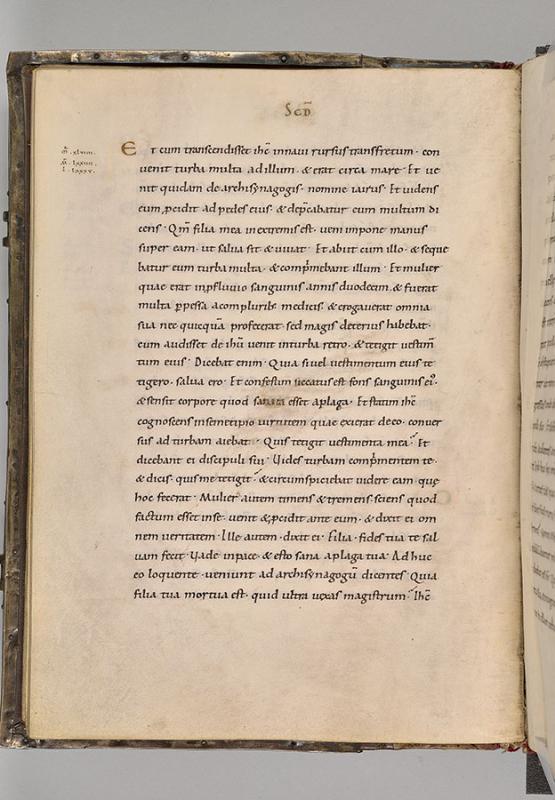 SCD̄
m̄. xlviiii.
m̄. lxxiiii.
l. lxxxv.
Et cum transcendisset ihc̄ in navi rursus transfretum · con
uenit turba multa ad illum · & erat circa mare · Et ue
nit quidam de archisynagogis · nomine iairus · Et uidens
eum p̱cidit ad pedes eius · & dep̄cabatur eum multum di
cens · Qm̄ filia mea in extremis est · ueni impone manus
super eam · ut salua sit & uiuat · Et abiit cum illo · & seque
batur eum turba multa · & comp̄mebant illum · Et mulier
quae erat in p̱fluuio sanguinis annis duodecim · & fuerat
multa p̱pessa a complurib; medicis · & erogauerat omnia
sua nec quicquā profecerat · sed magis deterius habebat ·
cum audisset de ihū uenit in turba retro · & tetigit uestim̄
tum eius · Dicebat enim · Quia si uel uestimentum eius te
tigero · salua ero · Et confestim siccatus est fons sanguinis ei᾽ ·
& sensit corpore quod sanata esset a plaga · Et statim ihc̄
cognoscens in semetipso uirtutem quae exierat de eo · conuer
sus ad turbam aiebat · Quis tetigit uestimenta mea · Et
dicebant ei discipuli sui · Uides turbam comp̄mentem te ·
& dicis quis me tetigit · & circumspiciebat uidere eam · que
hoc fecerat · Mulier autem timens & tremens · sciens quod
factum esset in se · uenit & p̱cidit ante eum · & dixit ei om
nem ueritatem · Ille autem · dixit ei · Filia · fides tua te sal
uam fecit · Uade in pace · & esto sana a plaga tua · Adhuc
eo loquente · ueniunt ad archisynagogū dicentes · Quia
filia tua mortua est · quid ultra uexas magistrum · Ihc̄